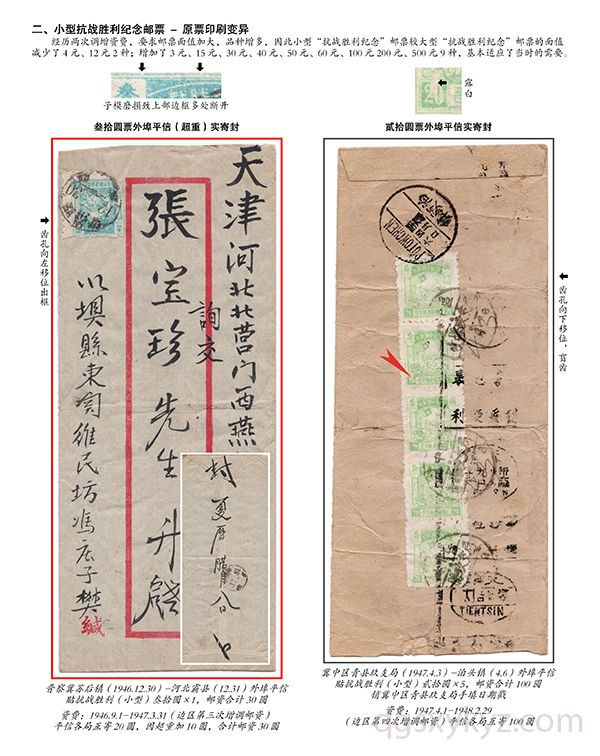 二、小型抗战胜利纪念邮票 – 原票印刷变异
经历两次调增资费，要求邮票面值加大，品种增多，因此小型“抗战胜利纪念”邮票较大型“抗战胜利纪念”邮票的面值
减少了4元、12元2种；增加了3元、15元、30元、40元、50元、60元、100元200元、500元9种，基本适应了当时的需要。
叁
子模磨损致上部边框多处断开
20
露白
叁拾圆票外埠平信（超重）实寄封
贰拾圆票外埠平信实寄封
齿孔向左移位出框
天津河北北营门西燕
詢交
張宝珍先生 升啟
以垻縣東窑維民坊馮庄子樊
緘
封
夏曆腊月八日
齿孔向下移位，盲齿
TIENTSIN
晋察冀苏后镇（1946.12.30）–河北霸县（12.31）外埠平信
贴抗战胜利（小型）叁拾圆×1，邮资合计30圆
资费：1946.9.1–1947.3.31（边区第三次增调邮资）
平信各局互寄20圆，因超重加10圆，合计邮资30圆
冀中区青县玖支局（1947.4.3）–泊头镇（4.6）外埠平信
贴抗战胜利（小型）贰拾圆×5，邮资合计100圆
销冀中区青县玖支局手填日期戳
资费：1947.4.1–1948.2.29
（边区第四次增调邮资）平信各局互寄100圆
www.qgsxykyz.com